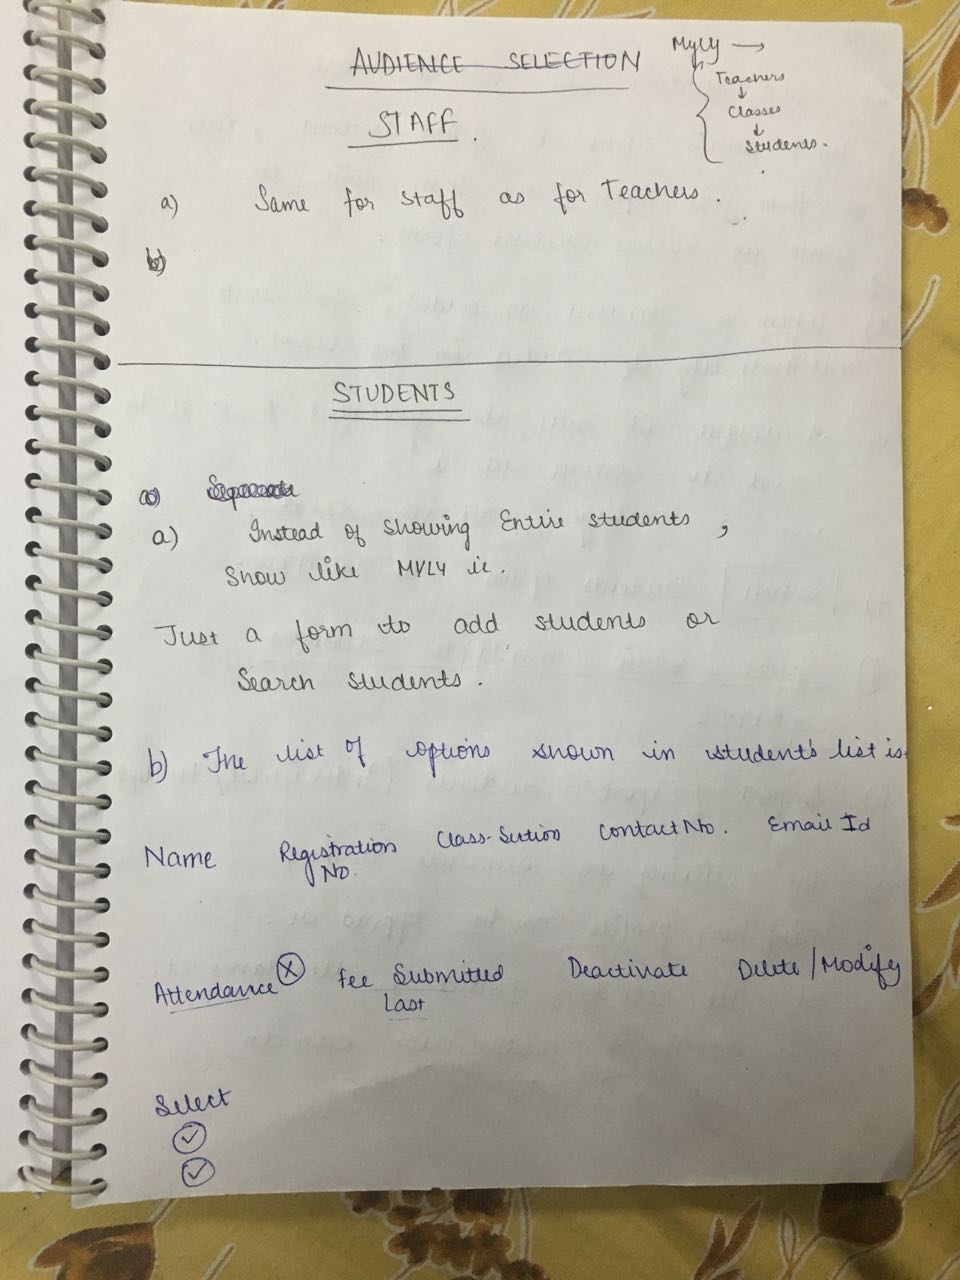 AUDIENCE SELECTION
MyLY →
Teachers
↓
Classes
↓
Students.
STAFF.
a) Same for staff as for Teachers.
b)
STUDENTS
a)
a) Instead of showing Entire students,
show like MYLY ie.
Just a form to add students or
Search students.
b) The list of options shown in student's list is
Name Registration No. Class-Section Contact No. Email Id
Attendance X Fee Submitted Last Deactivate Delete/Modify
Select
✓
✓